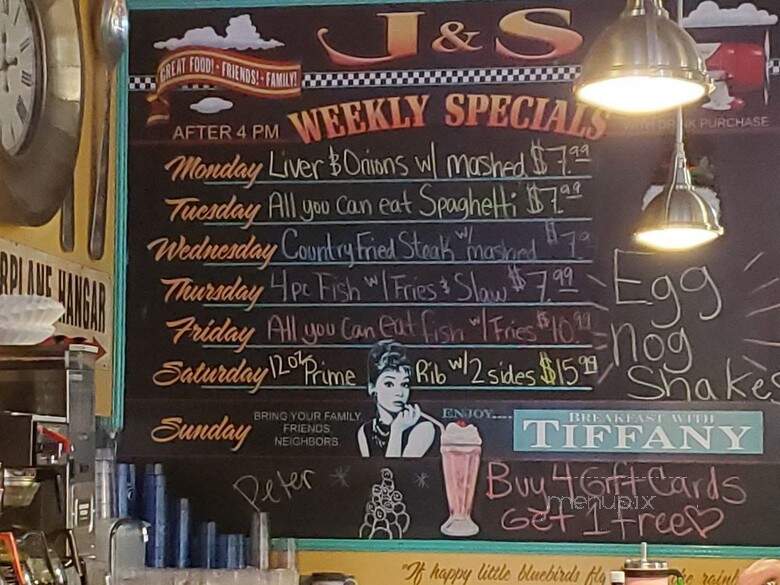 J & S
GREAT FOOD! - FRIENDS! - FAMILY!
WEEKLY SPECIALS
AFTER 4 PM
WITH DRINK PURCHASE
Monday Liver & Onions w/ mashed $7.99
Tuesday All you can eat Spaghetti $7.99
Wednesday Country Fried Steak w/ mashed $7.9
Thursday 4pc Fish w/ Fries & Slaw $7.99
Friday All you can eat fish w/ Fries $10.99
Saturday 12oz Prime Rib w/ 2 sides $15.99
Sunday BRING YOUR FAMILY
FRIENDS
NEIGHBORS
ENJOY....
BREAKFAST WITH
TIFFANY
Egg
nog
Shakes
Peter
Buy 4 Gift Cards
Get 1 free
menupix
RPLANE HANGAR
"If happy little bluebirds fl
rainb